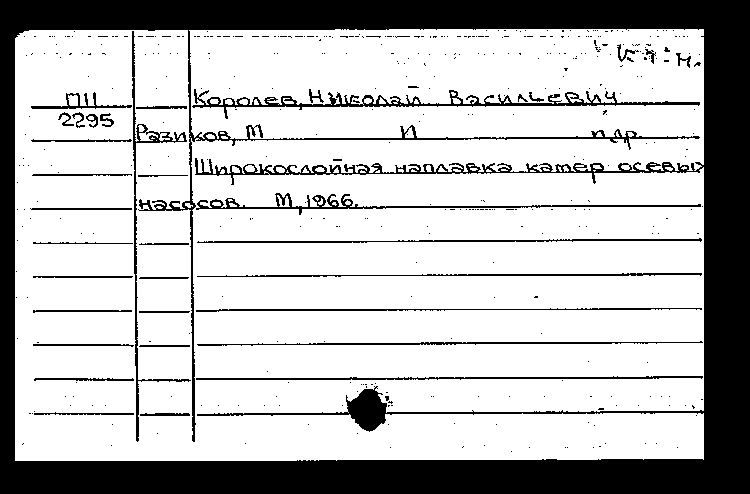 К.т.н.
ПН Королев, Николай Васильевич
2295
Разиков, М И и др.
Широкослойная наплавка камер осевых
насосов. М, 1966.